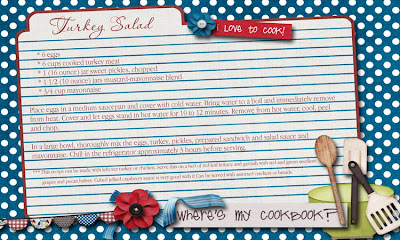 Turkey Salad
I Love to cook!
* 6 eggs
* 6 cups cooked turkey meat
* 1 (16 ounce) jar sweet pickles, chopped
* 1 1/2 (10 ounce) jars mustard-mayonnaise blend
* 3/4 cup mayonnaise
Place eggs in a medium saucepan and cover with cold water. Bring water to a boil and immediately remove
from heat. Cover and let eggs stand in hot water for 10 to 12 minutes. Remove from hot water, cool, peel
and chop.
In a large bowl, thoroughly mix the eggs, turkey, pickles, prepared sandwich and salad sauce and
mayonnaise. Chill in the refrigerator approximately 3 hours before serving.
***This recipe can be made with leftover turkey or chicken. Serve this on a bed of red leaf lettuce and garnish with red and green seedless
grapes and pecan halves. Cubed jellied cranberry sauce is very good with it Can be served with assorted crackers or breads.
Where's my cookbook?